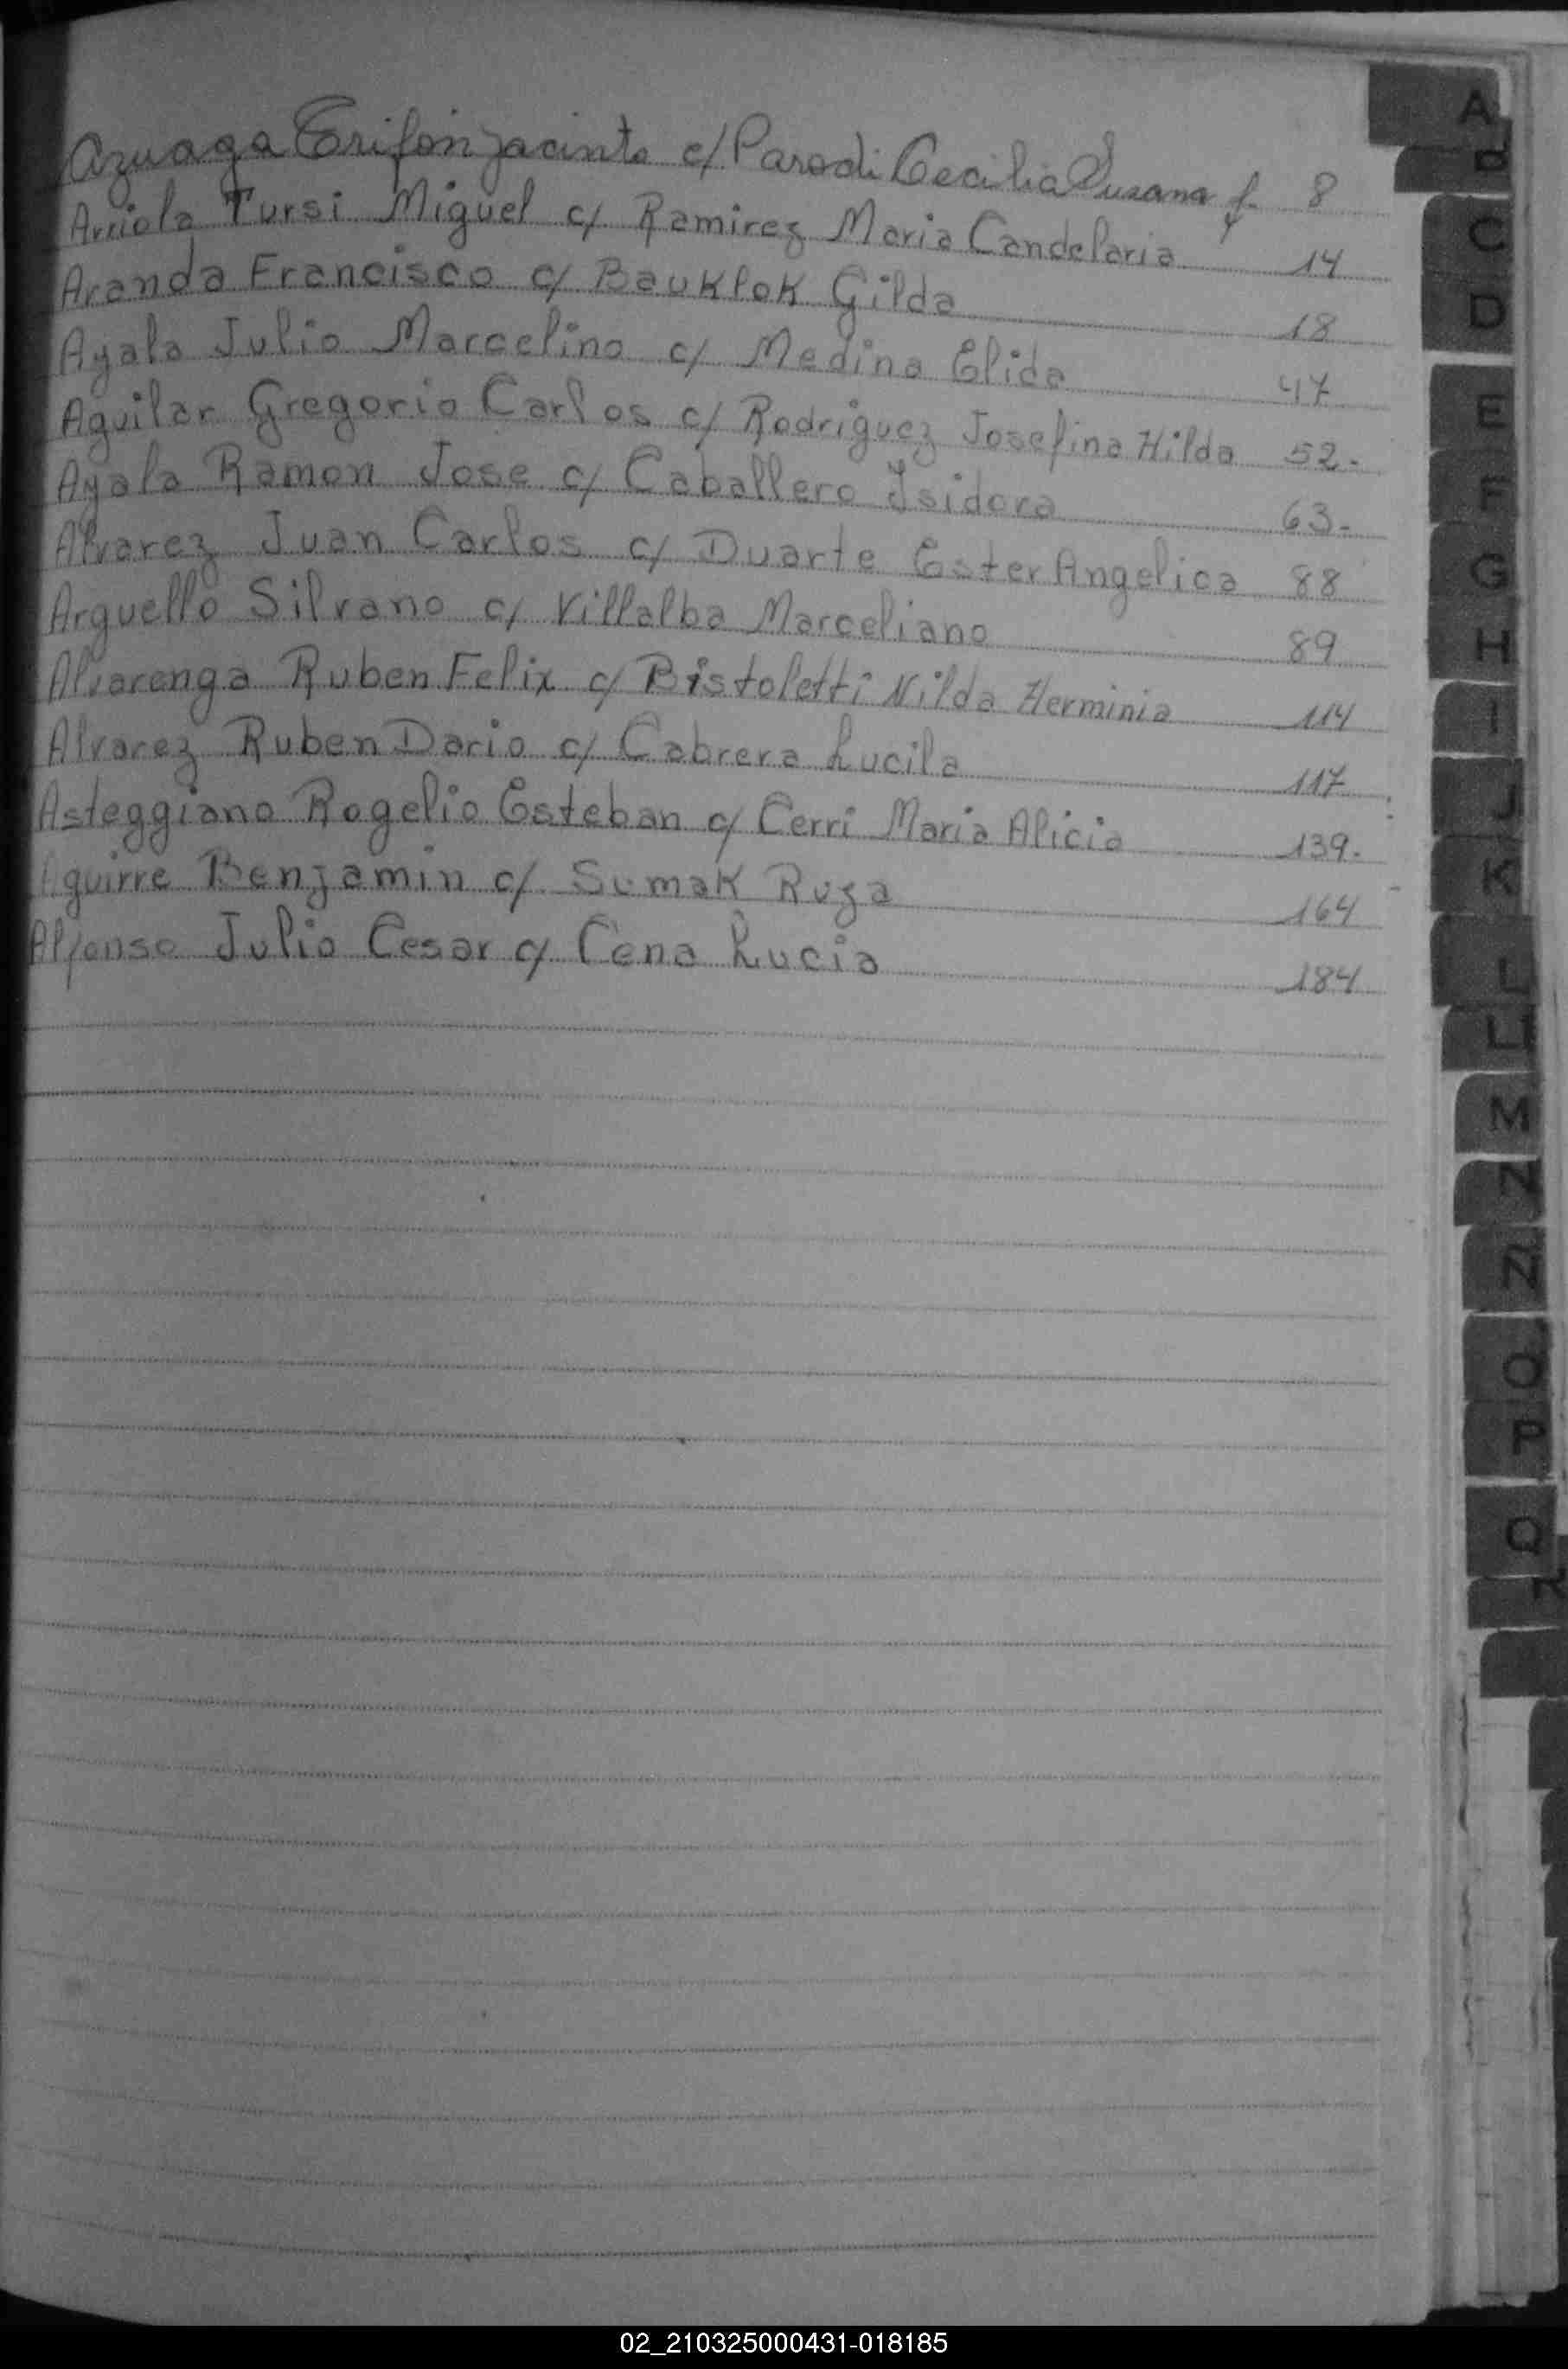 Azuaga Trifón Jacinto c/ Parodi Cecilia Susana f. 8
Arriola Tursi Miguel c/ Ramirez Maria Candelaria 14
Aranda Francisco c/ Bauklok Gilda 18
Ayala Julio Marcelino c/ Medina Elida 47
Aguilar Gregorio Carlos c/ Rodriguez Josefina Hilda 52.
Ayala Ramon Jose c/ Caballero Isidora 63-
Alvarez Juan Carlos c/ Duarte Ester Angelica 88
Arguello Silvano c/ Villalba Marceliano 89
Alvarenga Ruben Felix c/ Bistoletti Nilda Herminia 114
Alvarez Ruben Dario c/ Cabrera Lucila 117
Asteggiano Rogelio Esteban c/ Cerri Maria Alicia 139.
Aguirre Benjamin c/ Sumak Ruza 164
Alfonso Julio Cesar c/ Cena Lucia 184
A
B
C
D
E
F
G
H
I
J
K
L
LL
M
N
Ñ
O
P
Q
R
02_210325000431-018185